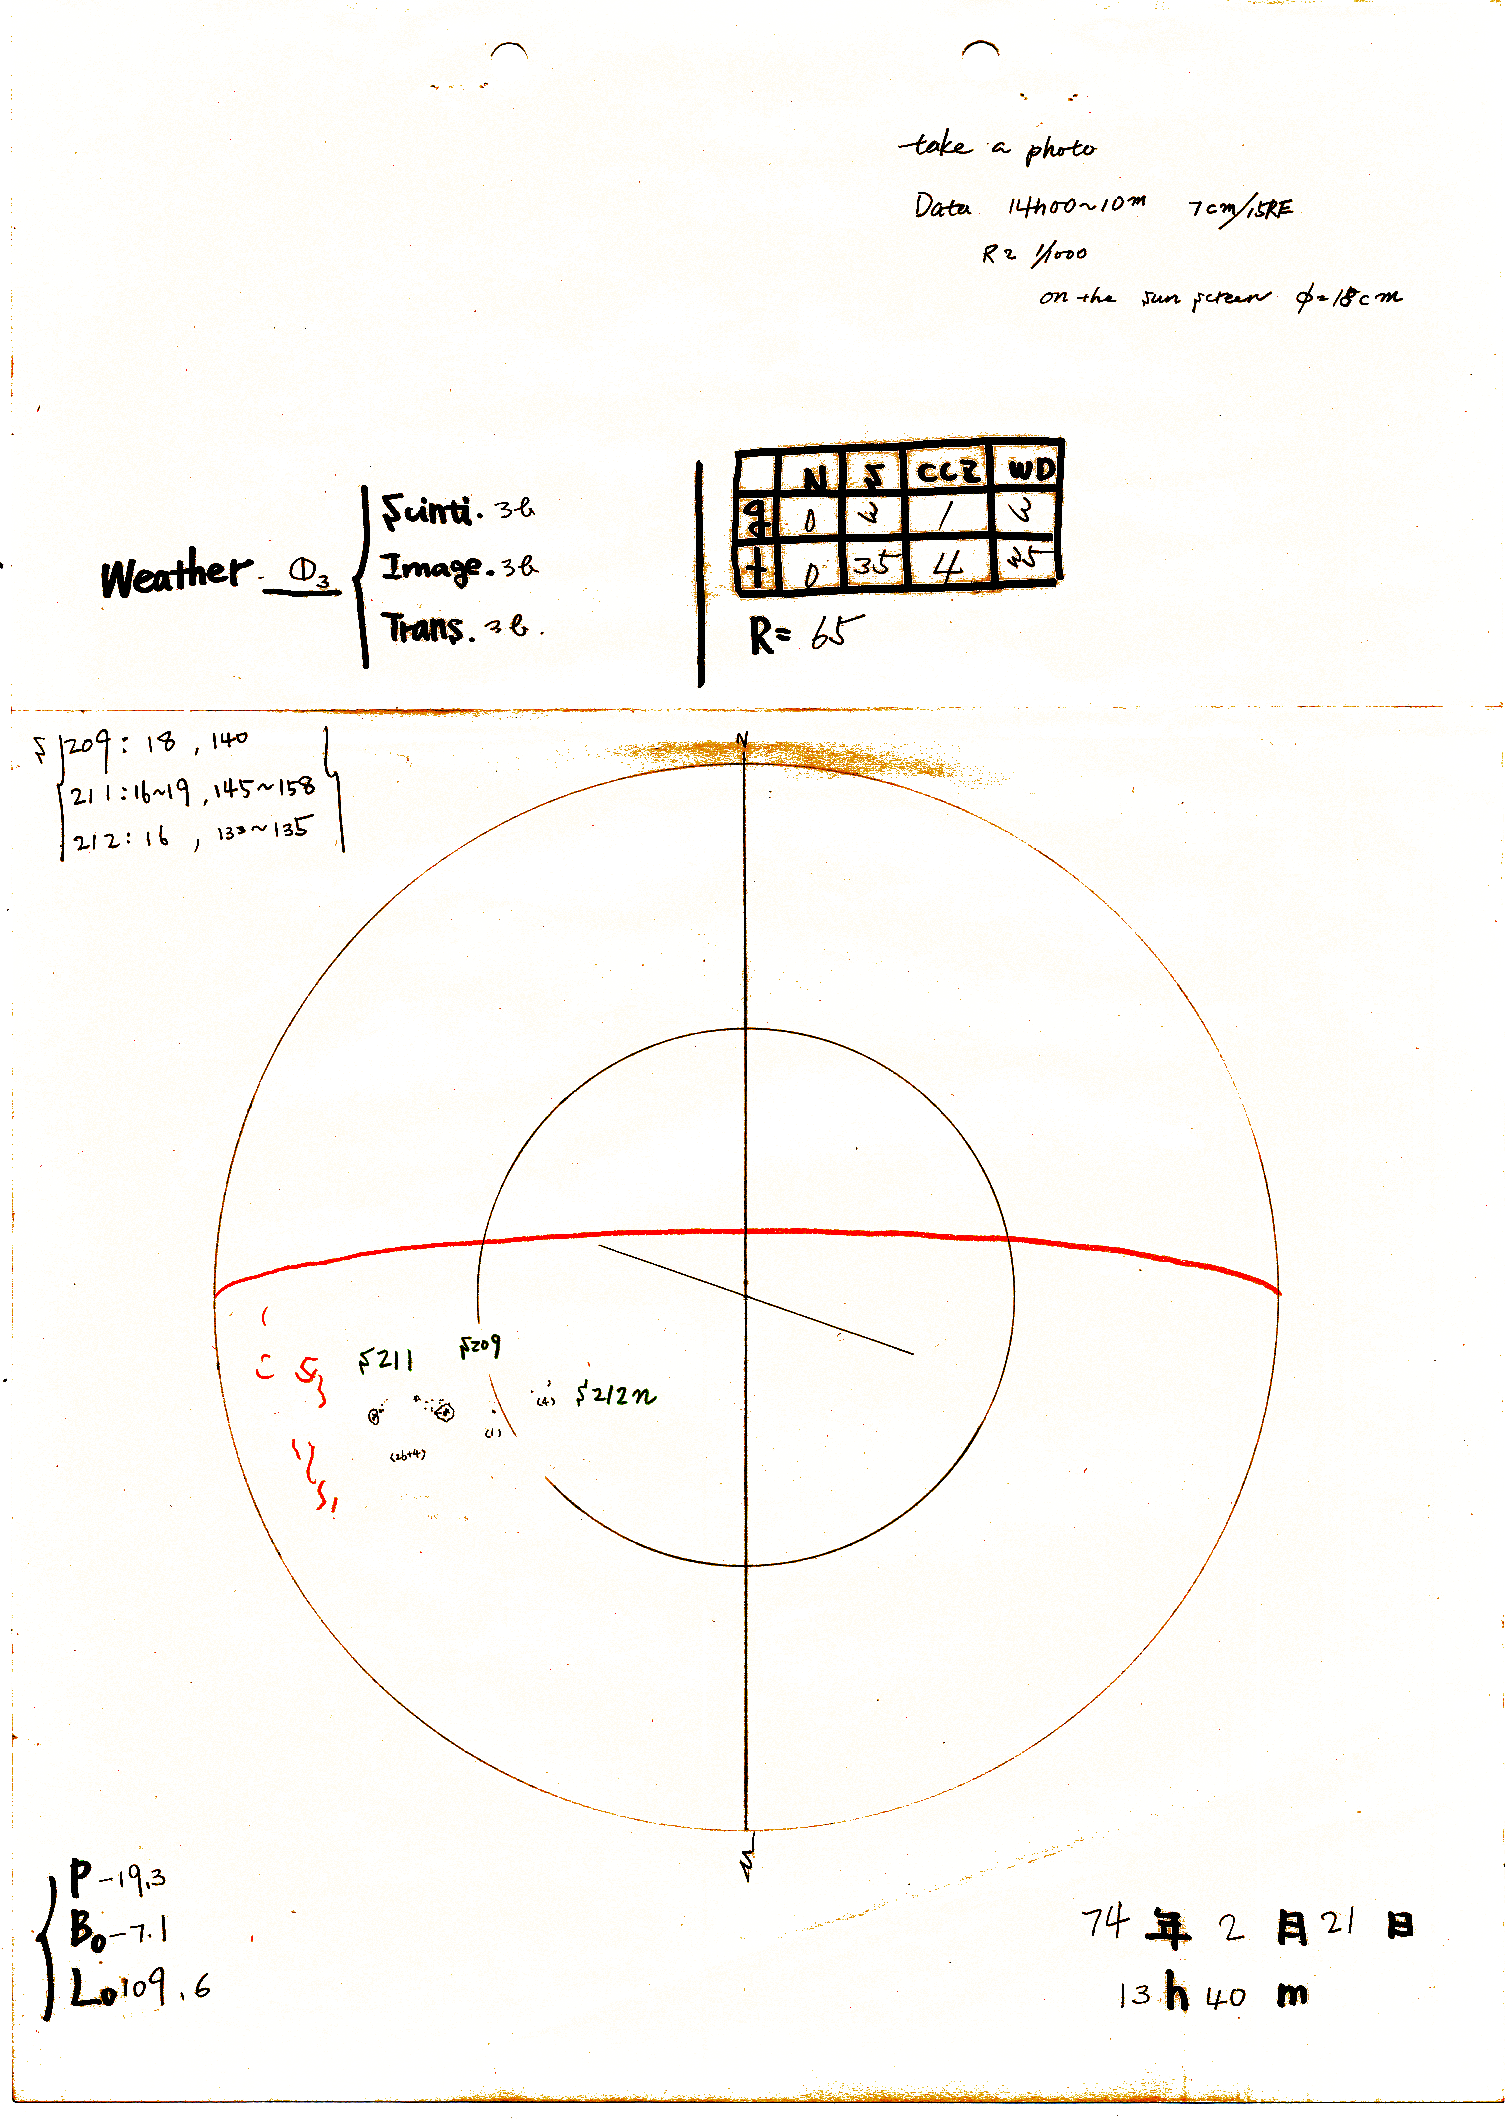 take a photo
Data 14h00~10m 7cm/15RE
R2 1/1000
on the sun screen φ=18cm
N S CCZ WD
g 0 3 1 3
f 0 35 4 35
R= 65
Weather Φ3
Scinti. 3b
Image. 3b
Trans. 3b.
S 209: 18, 140
211: 16~19, 145~158
212: 16, 133~135
N
S211 S209
S212n
(4)
(1)
(26+4)
S
P -19.3
B0 -7.1
L0 109.6
74年2月21日
13h40m